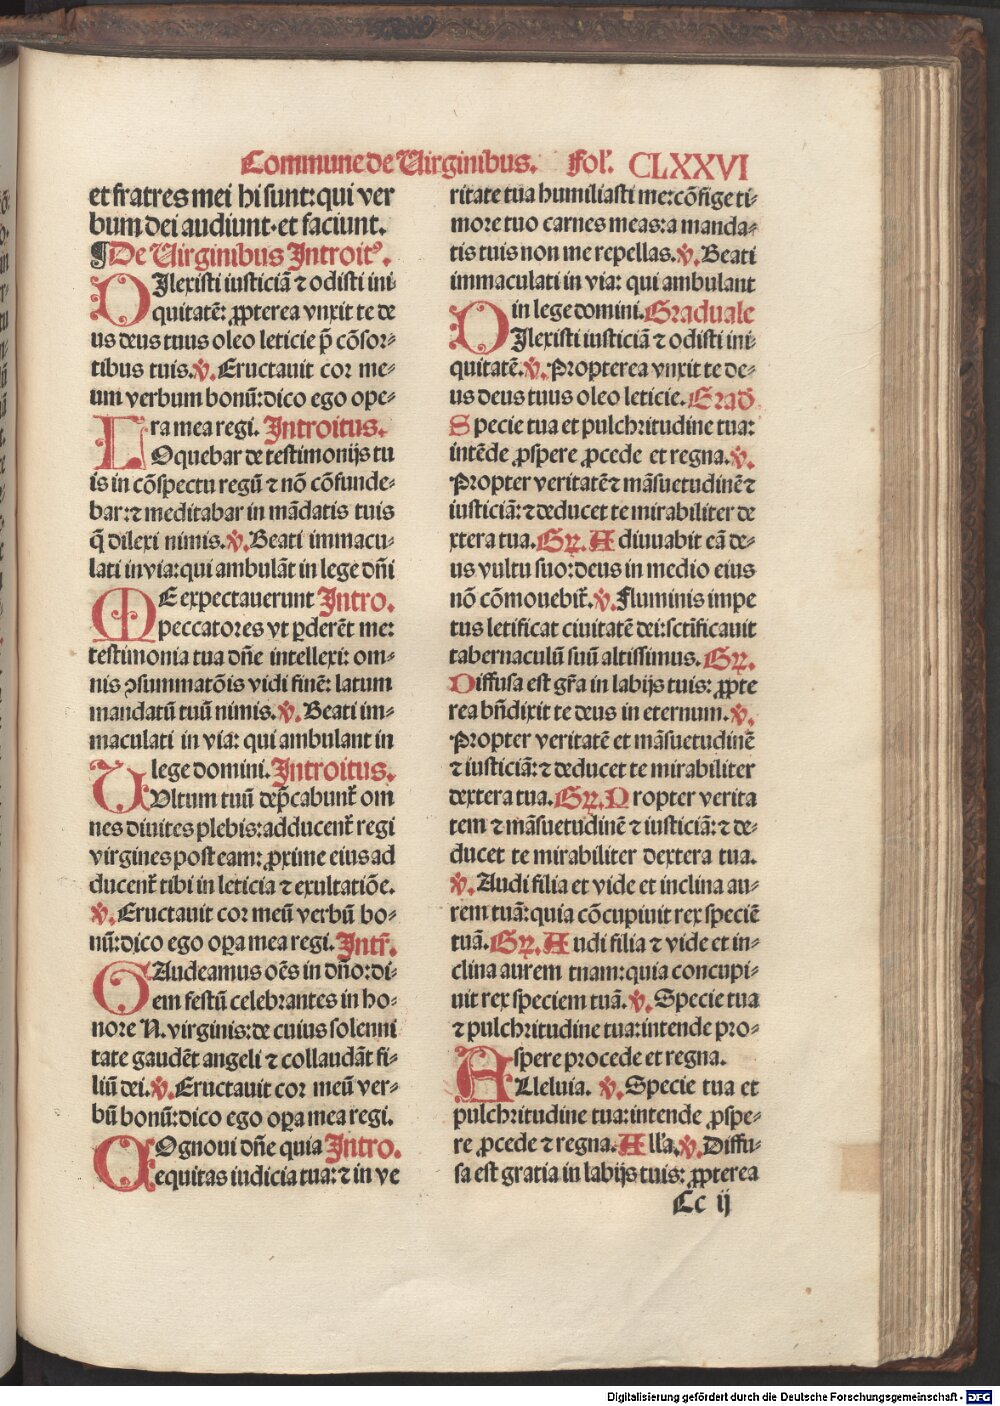 Commune de Virginibus. Fol'. CLXXVI
et fratres mei hi sunt: qui ver
bum dei audiunt· et faciunt.
¶De Virginibus Introitꝰ.
DIlexisti iusticiā ⁊ odisti ini
quitatē: ꝓpterea vnxit te de
us deus tuus oleo leticie p̄ cōsor⸗
tibus tuis. ℣. Eructauit cor me⸗
um verbum bonū: dico ego ope⸗
ra mea regi. Introitus.
LOquebar de testimonijs tu
is in cōspectu regū ⁊ nō cōfunde⸗
bar: ⁊ meditabar in mādatis tuis
q̄ dilexi nimis. ℣. Beati immacu⸗
lati in via: qui ambulāt in lege dñi
ME expectauerunt Intro.
peccatores vt ꝑderēt me:
testimonia tua dñe intellexi: om⸗
nis ꝯsummatōis vidi finē: latum
mandatū tuū nimis. ℣. Beati im⸗
maculati in via: qui ambulant in
lege domini. Introitus.
VUltum tuū dep̄cabunt᷑ om
nes diuites plebis: adducent᷑ regi
virgines post eam: ꝓxime eius ad
ducent᷑ tibi in leticia ⁊ exultatiōe.
℣. Eructauit cor meū verbū bo⸗
nū: dico ego oꝑa mea regi. Intr̄.
GAudeamus oēs in dño: di⸗
em festū celebrantes in ho⸗
nore N. virginis: de cuius solenni
tate gaudēt angeli ⁊ collaudāt fi⸗
liū dei. ℣. Eructauit cor meū ver⸗
bū bonū: dico ego oꝑa mea regi.
COgnoui dñe quia Intro.
equitas iudicia tua: ⁊ in ve
ritate tua humiliasti me: cōfige ti⸗
more tuo carnes meas: a manda⸗
tis tuis non me repellas. ℣. Beati
immaculati in via: qui ambulant
in lege domini. Graduale
DIlexisti iusticiā ⁊ odisti ini⸗
quitatē. ℣. Propterea vnxit te de⸗
us deus tuus oleo leticie. Grad̄.
Specie tua et pulchritudine tua:
intēde ꝓspere ꝓcede et regna. ℣.
Propter veritatē ⁊ māsuetudinē ⁊
iusticiā: ⁊ deducet te mirabiliter de
xtera tua. Gꝶ. Adiuuabit eā de⸗
us vultu suo: deus in medio eius
nō cōmouebit᷑. ℣. Fluminis impe
tus letificat ciuitatē dei: sct̄ificauit
tabernaculū suū altissimus. Gꝶ.
Diffusa est gr̄a in labijs tuis: ꝓpte
rea bn̄dixit te deus in eternum. ℣.
Propter veritatē et māsuetudinē
⁊ iusticiā: ⁊ deducet te mirabiliter
dextera tua. Gꝶ. Propter verita
tem ⁊ māsuetudinē ⁊ iusticiā: ⁊ de⸗
ducet te mirabiliter dextera tua.
℣. Audi filia et vide et inclina au⸗
rem tuā: quia cōcupiuit rex speciē
tuā. Gꝶ. Audi filia ⁊ vide et in⸗
clina aurem tnam: quia concupi⸗
uit rex speciem tuā. ℣. Specie tua
⁊ pulchritudine tua: intende pro⸗
spere procede et regna.
ALleluia. ℣. Specie tua et
pulchritudine tua: intende ꝓspe⸗
re ꝓcede ⁊ regna. All'a. ℣. Diffu⸗
sa est gratia in labijs tuis: ꝓpterea
Cc ij
Digitalisierung gefördert durch die Deutsche Forschungsgemeinschaft - DFG